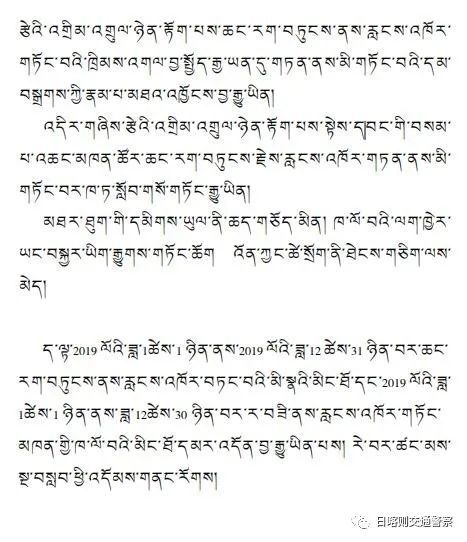 རྩེའི་འགྲིམ་འགྲུལ་ཉེན་རྟོག་པས་ཆང་རག་བཏུངས་ནས་རླངས་འཁོར་
གཏོང་བའི་ཁྲིམས་འགལ་བྱ་སྤྱོད་རྒྱ་ཡན་དུ་གཏན་ནས་མི་གཏོང་བའི་དམ་
བསྒྲགས་ཀྱི་རྣམ་པ་མཐའ་འཁྱོངས་བྱ་རྒྱུ་ཡིན།
འདིར་གཞིས་རྩེའི་འགྲིམ་འགྲུལ་ཉེན་རྟོག་པས་སྟེས་དབང་གི་བསམ་
པ་འཆང་མཁན་ཚོར་ཆང་རག་བཏུངས་རྗེས་རླངས་འཁོར་གཏན་ནས་མི་
གཏོང་བར་ཁ་ཏ་སློབ་གསོ་གཏོང་རྒྱུ་ཡིན།
མཐར་ཐུག་གི་དམིགས་ཡུལ་ནི་ཆད་གཅོད་མིན། ཁ་ལོ་བའི་ལག་ཁྱེར་
ཡང་བསྐྱར་ཡིག་རྒྱུགས་གཏོང་ཆོག འོན་ཀྱང་ཚེ་སྲོག་ནི་ཐེངས་གཅིག་ལས་
མེད།
ད་ལྟ་2019 ལོའི་ཟླ་1ཚེས་1 ཉིན་ནས་2019 ལོའི་ཟླ་12 ཚེས་31 ཉིན་བར་ཆང་
རག་བཏུངས་ནས་རླངས་འཁོར་བཏང་བའི་མི་སྣའི་མིང་ཐོ་དང་2019 ལོའི་ཟླ་
1ཚེས་1 ཉིན་ནས་ཟླ་12ཚེས་30 ཉིན་བར་ར་བཟི་ནས་རླངས་འཁོར་གཏོང་
མཁན་གྱི་ཁ་ལོ་བའི་མིང་ཐོ་དམར་འདོན་བྱ་རྒྱུ་ཡིན་པས། རེ་བར་ཚང་མས་
སྔ་བསླབ་ཕྱི་འདོམས་གནང་རོགས།
日喀则交通警察